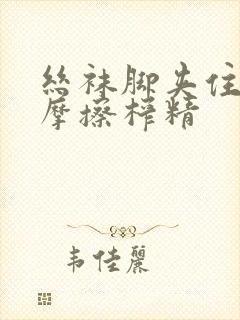 丝袜脚夹住
摩擦榨精
韦佳丽